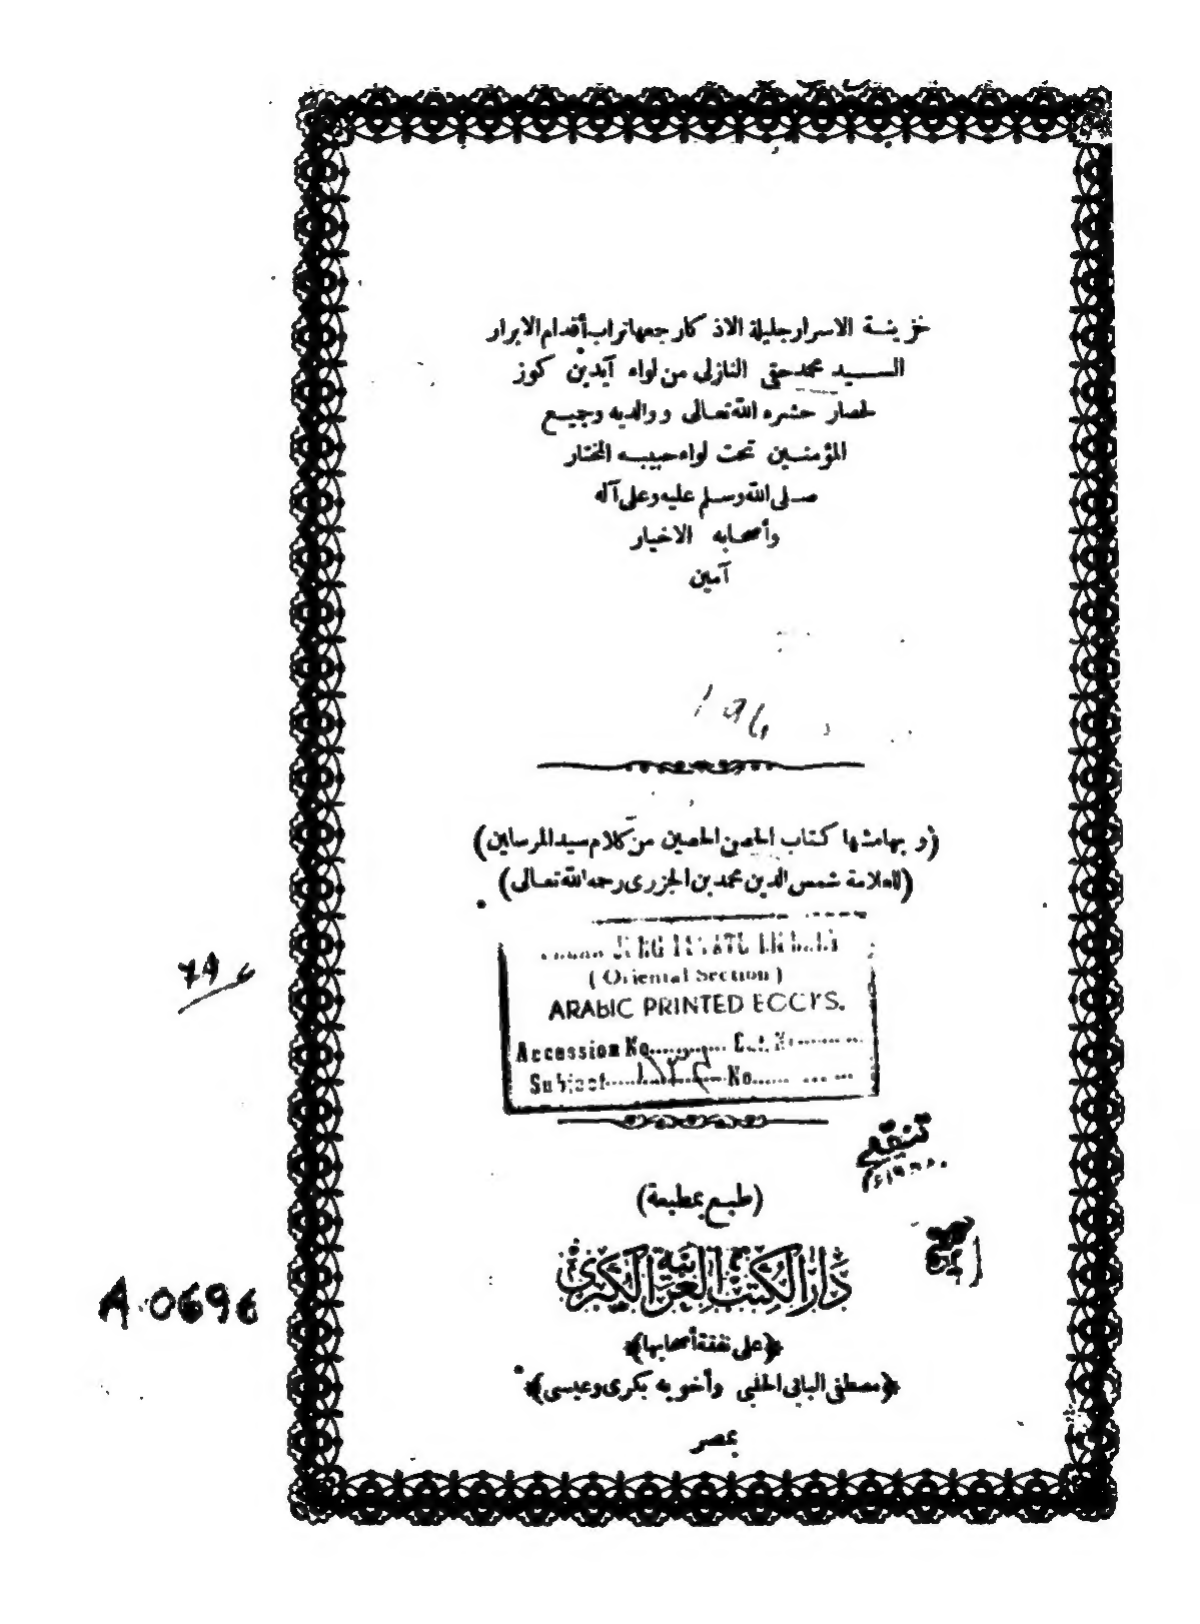 خزينة الاسرار جليلة الاذكار جمعها تراب أقدام الابرار
السيد محمد حقى النازلى من لواء آيدين كوز
لحصار حشره الله تعالى ووالديه وجميع
المؤمنين تحت لواء حبيبه المختار
صلى الله وسلم عليه وعلى آله
وأصحابه الاخيار
آمين
(وبهامشها كتاب الحصن الحصين من كلام سيد المرسلين)
(للعلامة شمس الدين محمد بن الجزرى رحمه الله تعالى)
(Oriental Section)
ARABIC PRINTED BOOKS.
Accession No. Cat. No
Subject No.
(طبع بمطبعة)
دار الكتب العربية الكبرى
(على نفقة أصحابها)
(مصطفى البابى الحلبى وأخويه بكرى وعيسى)
بمصر
A.0696